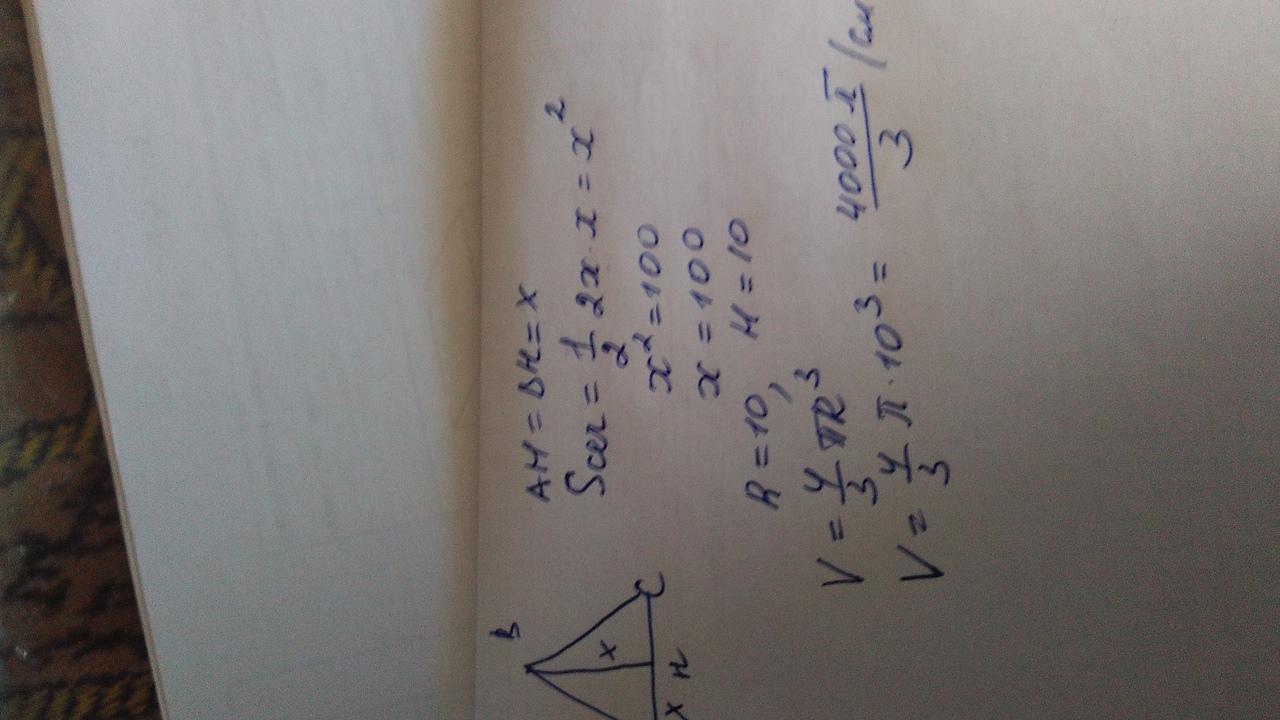 AH = BH = x
Sсеч = 1/2 2x · x = x²
x² = 100
x = 100
R = 10, H = 10
V = 4/3 πR³
V = 4/3 π · 10³ = 4000π/3 (см
B
x
C
x H